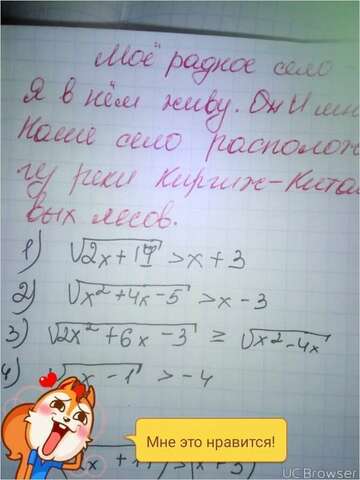 Моё радное село
Я в нём живу. Он
Наше село располож
гу реки Киргиж-Кита
вых лесов.
1) √2x + 14 > x + 3
2) √x² + 4x - 5 > x - 3
3) √2x² + 6x - 3 ≥ √x² - 4x
4) √x - 1 > -4
Мне это нравится!
UC Browser